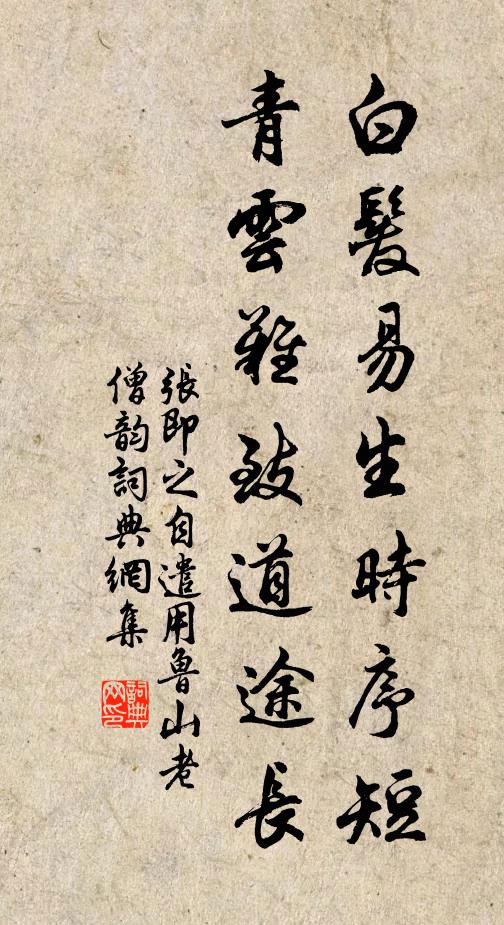 白髮易生時序短
青雲難致道途長
張即之自遣用魯山老
僧韵詞典網集
詞典网印